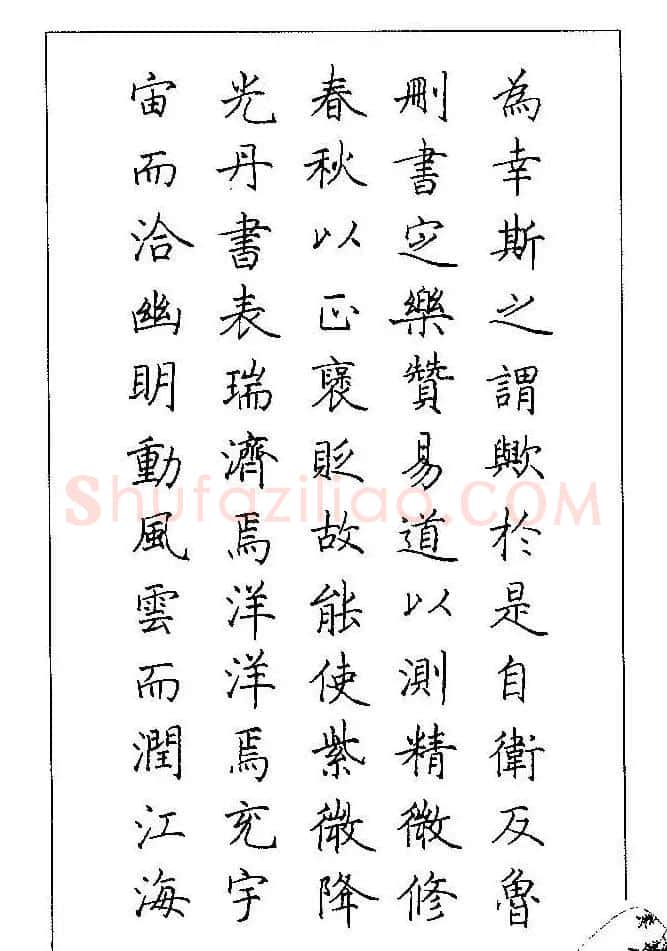 為幸斯之謂歟於是自衛反魯
刪書定樂贊易道以測精微修
春秋以正褒貶故能使紫微降
光丹書表瑞濟焉洋洋焉充宇
宙而洽幽明動風雲而潤江海
Shufaziliao.COM